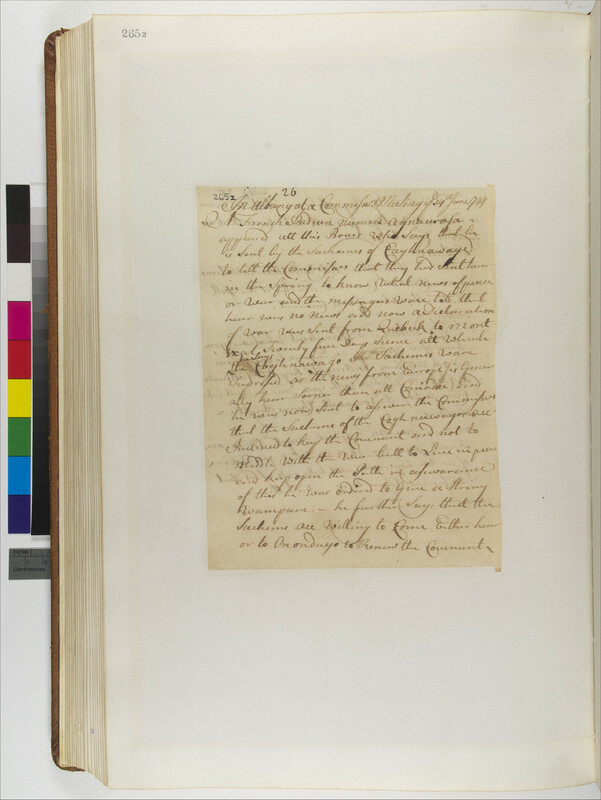 265z
265z 26
In Albany at a Commissrs Meeting ye 24th June 1744
A French Indian named Agnaurasa
appeared att this Board who Says that he
is Sent by the Sachems of Caghnawage
to tell the Commissrs that they had Sent hear
in the Spring to know what news of peace
or War and the messengers ware told that
hear was no news and now a declaration
of War was Sent from Quebeck to Mont
real Twenty five Days Scence att which
he Says
Caghnawago Sachems ware
Surprised as the news from Europe is Gener
ally hear Sooner than att Canada and
he was now Sent to assure the Commissrs
that the Sachems of the Caghnawagos are
Inclined to keep the Covenant and not to
meddle with the War but to Live in peace
and keep open the Path in assurance
of this he was ordred to give a String
Wampum — he further Says that the
Sachems are Willing to Come Either hear
or to Onondago to Renew the Covenant
Centimetres